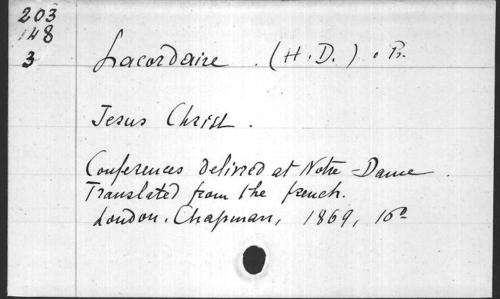 203
148
3
Lacordaire . (H. D.) o Pr.
Jesus Christ .
Conferences delivred at Notre-Dame .
Translated from the french.
London. Chapman, 1869, 16o